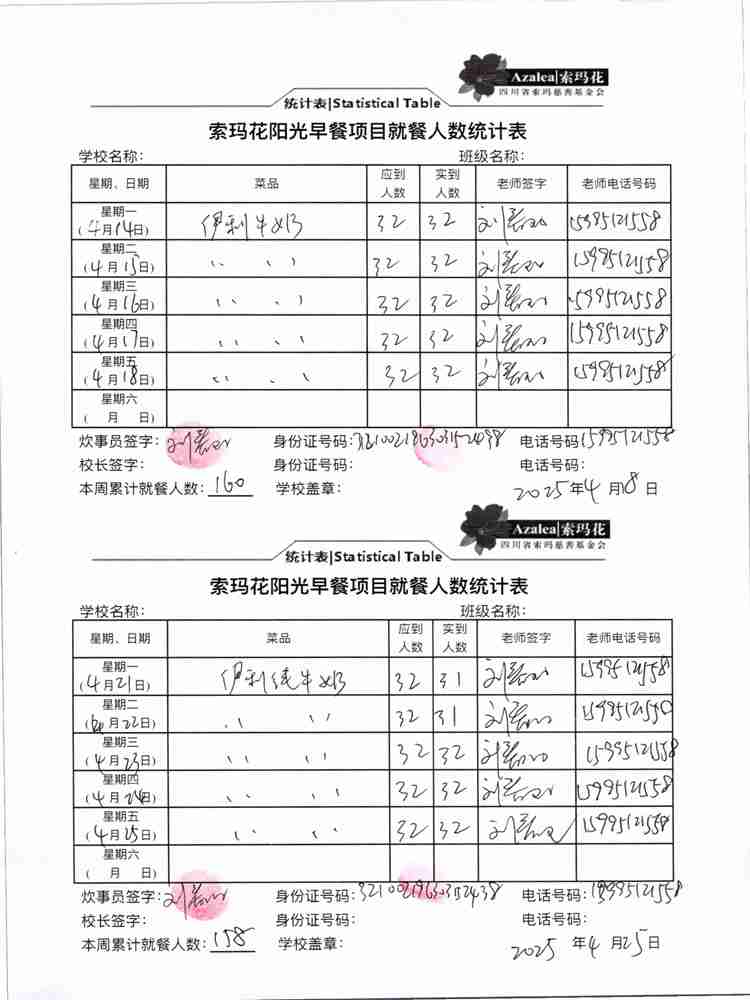 Azalea|索玛花
四川省索玛慈善基金会
统计表|Statistical Table
索玛花阳光早餐项目就餐人数统计表
学校名称： 班级名称：
星期、日期 菜品 应到人数 实到人数 老师签字 老师电话号码
星期一 (4月14日) 伊利牛奶 32 32 15995121558
星期二 (4月15日) 〃 〃 32 32 15995121558
星期三 (4月16日) 〃 〃 32 32 15995121558
星期四 (4月17日) 〃 〃 32 32 15995121558
星期五 (4月18日) 〃 〃 32 32 15995121558
星期六 ( 月 日)
炊事员签字： 身份证号码： 电话号码15995121558
校长签字： 身份证号码： 电话号码：
本周累计就餐人数：160 学校盖章： 2025年4月18日
Azalea|索玛花
四川省索玛慈善基金会
统计表|Statistical Table
索玛花阳光早餐项目就餐人数统计表
学校名称： 班级名称：
星期、日期 菜品 应到人数 实到人数 老师签字 老师电话号码
星期一 (4月21日) 伊利纯牛奶 32 31 15995121558
星期二 (4月22日) 〃 〃 32 31
星期三 (4月23日) 〃 〃 32 32 15995121558
星期四 (4月24日) 〃 〃 32 32 15995121558
星期五 (4月25日) 〃 〃 32 32 15995121558
星期六 ( 月 日)
炊事员签字： 身份证号码： 电话号码：15995121558
校长签字： 身份证号码： 电话号码：
本周累计就餐人数：158 学校盖章： 2025 年4月25日